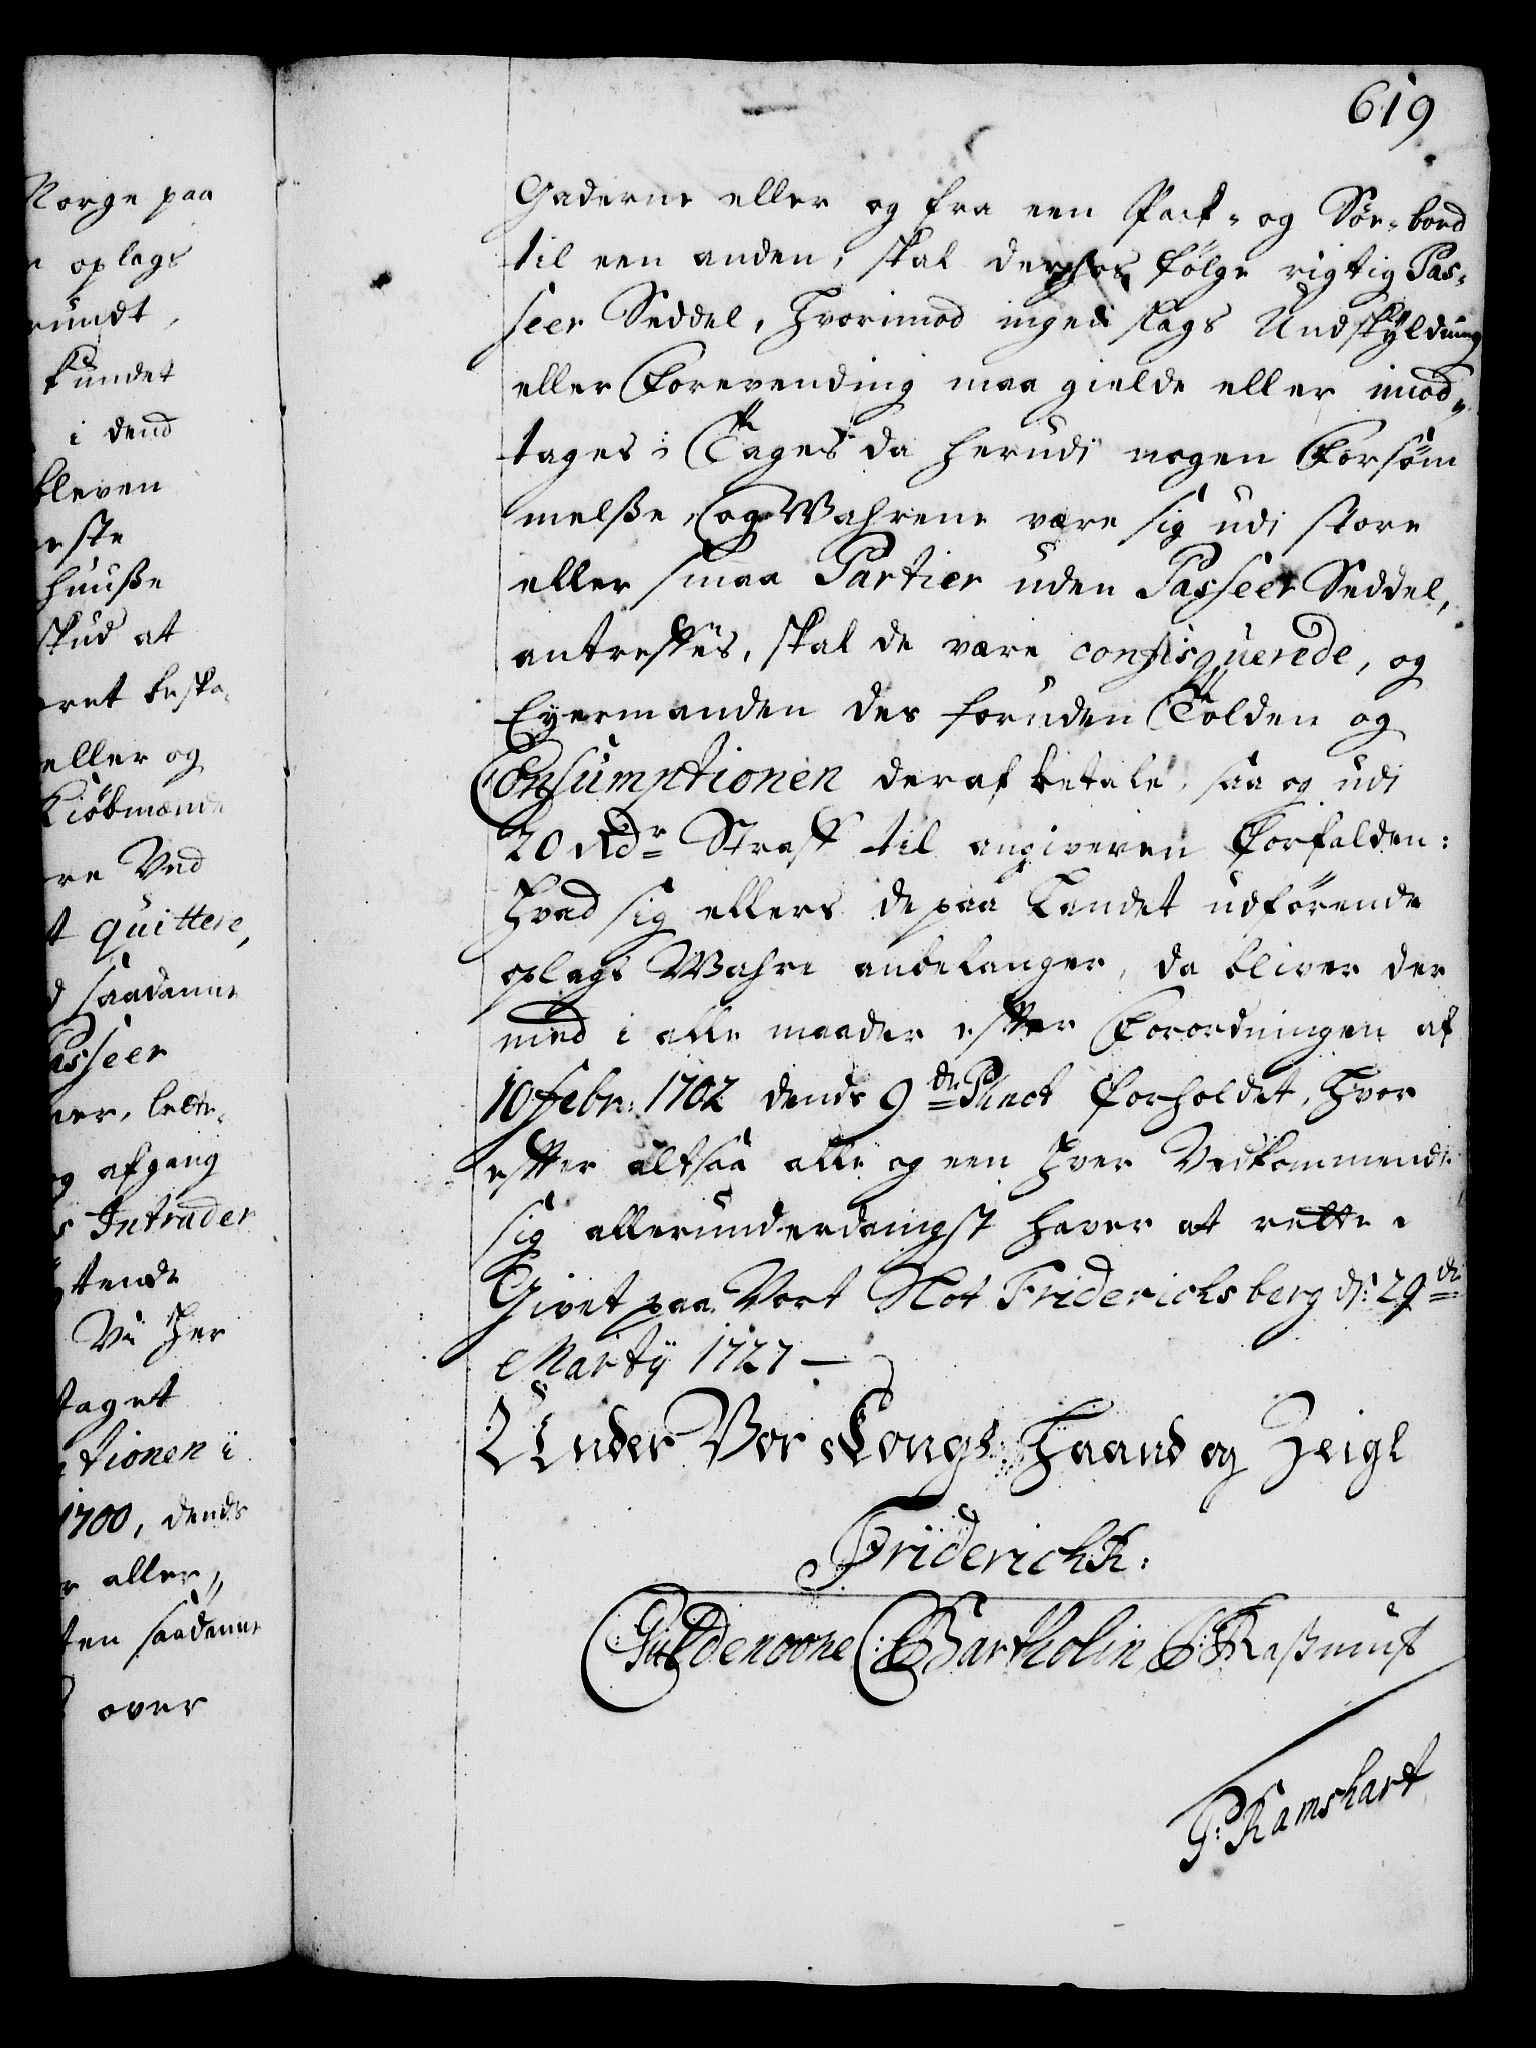 619
Gaderne eller og fra een Pack- og Söe-bod
til een anden, skal derhos fölge rigtig Pas-
seer Seddel, hvorimod ingen slags Undskyldning
eller Forevending maa gielde eller imod-
tages: Tages da herudj nogen Forsöm
melße, og Wahrene være sig udj store
eller smaa Partier uden Passeer Seddel,
antreffes, skal de være confisquerede, og
Eyermanden des foruden Tolden og
Consumptionen deraf betale, saa og udj
20 Rdr Straff til angiveren Forfalden:
Hvad sig ellers de paa Landet udförende
oplags Wahre anbelanger, da bliver der
med i alle maader efter Forordningen af
10 Febr: 1702 dends 9de Punct forholdet, hvor
efter altsaa alle og een hver Vedkommende
sig allerunderdanigst haver at rette.
Givet paa Vort Slot Friderichsberg d: 29de
Martÿ 1727 —
Under Vor Kongl: Haand og Zeigl
Friderich R:
Güldencrone C: Bartholin
G: Ramshart
Norge paa
oplags
rundt,
kundet
i dend
bleven
este
huuße
skud at
eller og
Kiöbmænd
Ved
quittere,
saadanne
asseer
afgang
Intrader
Vii her
taget
tionen i
1700, dends
aller,,
ten saadanne
over